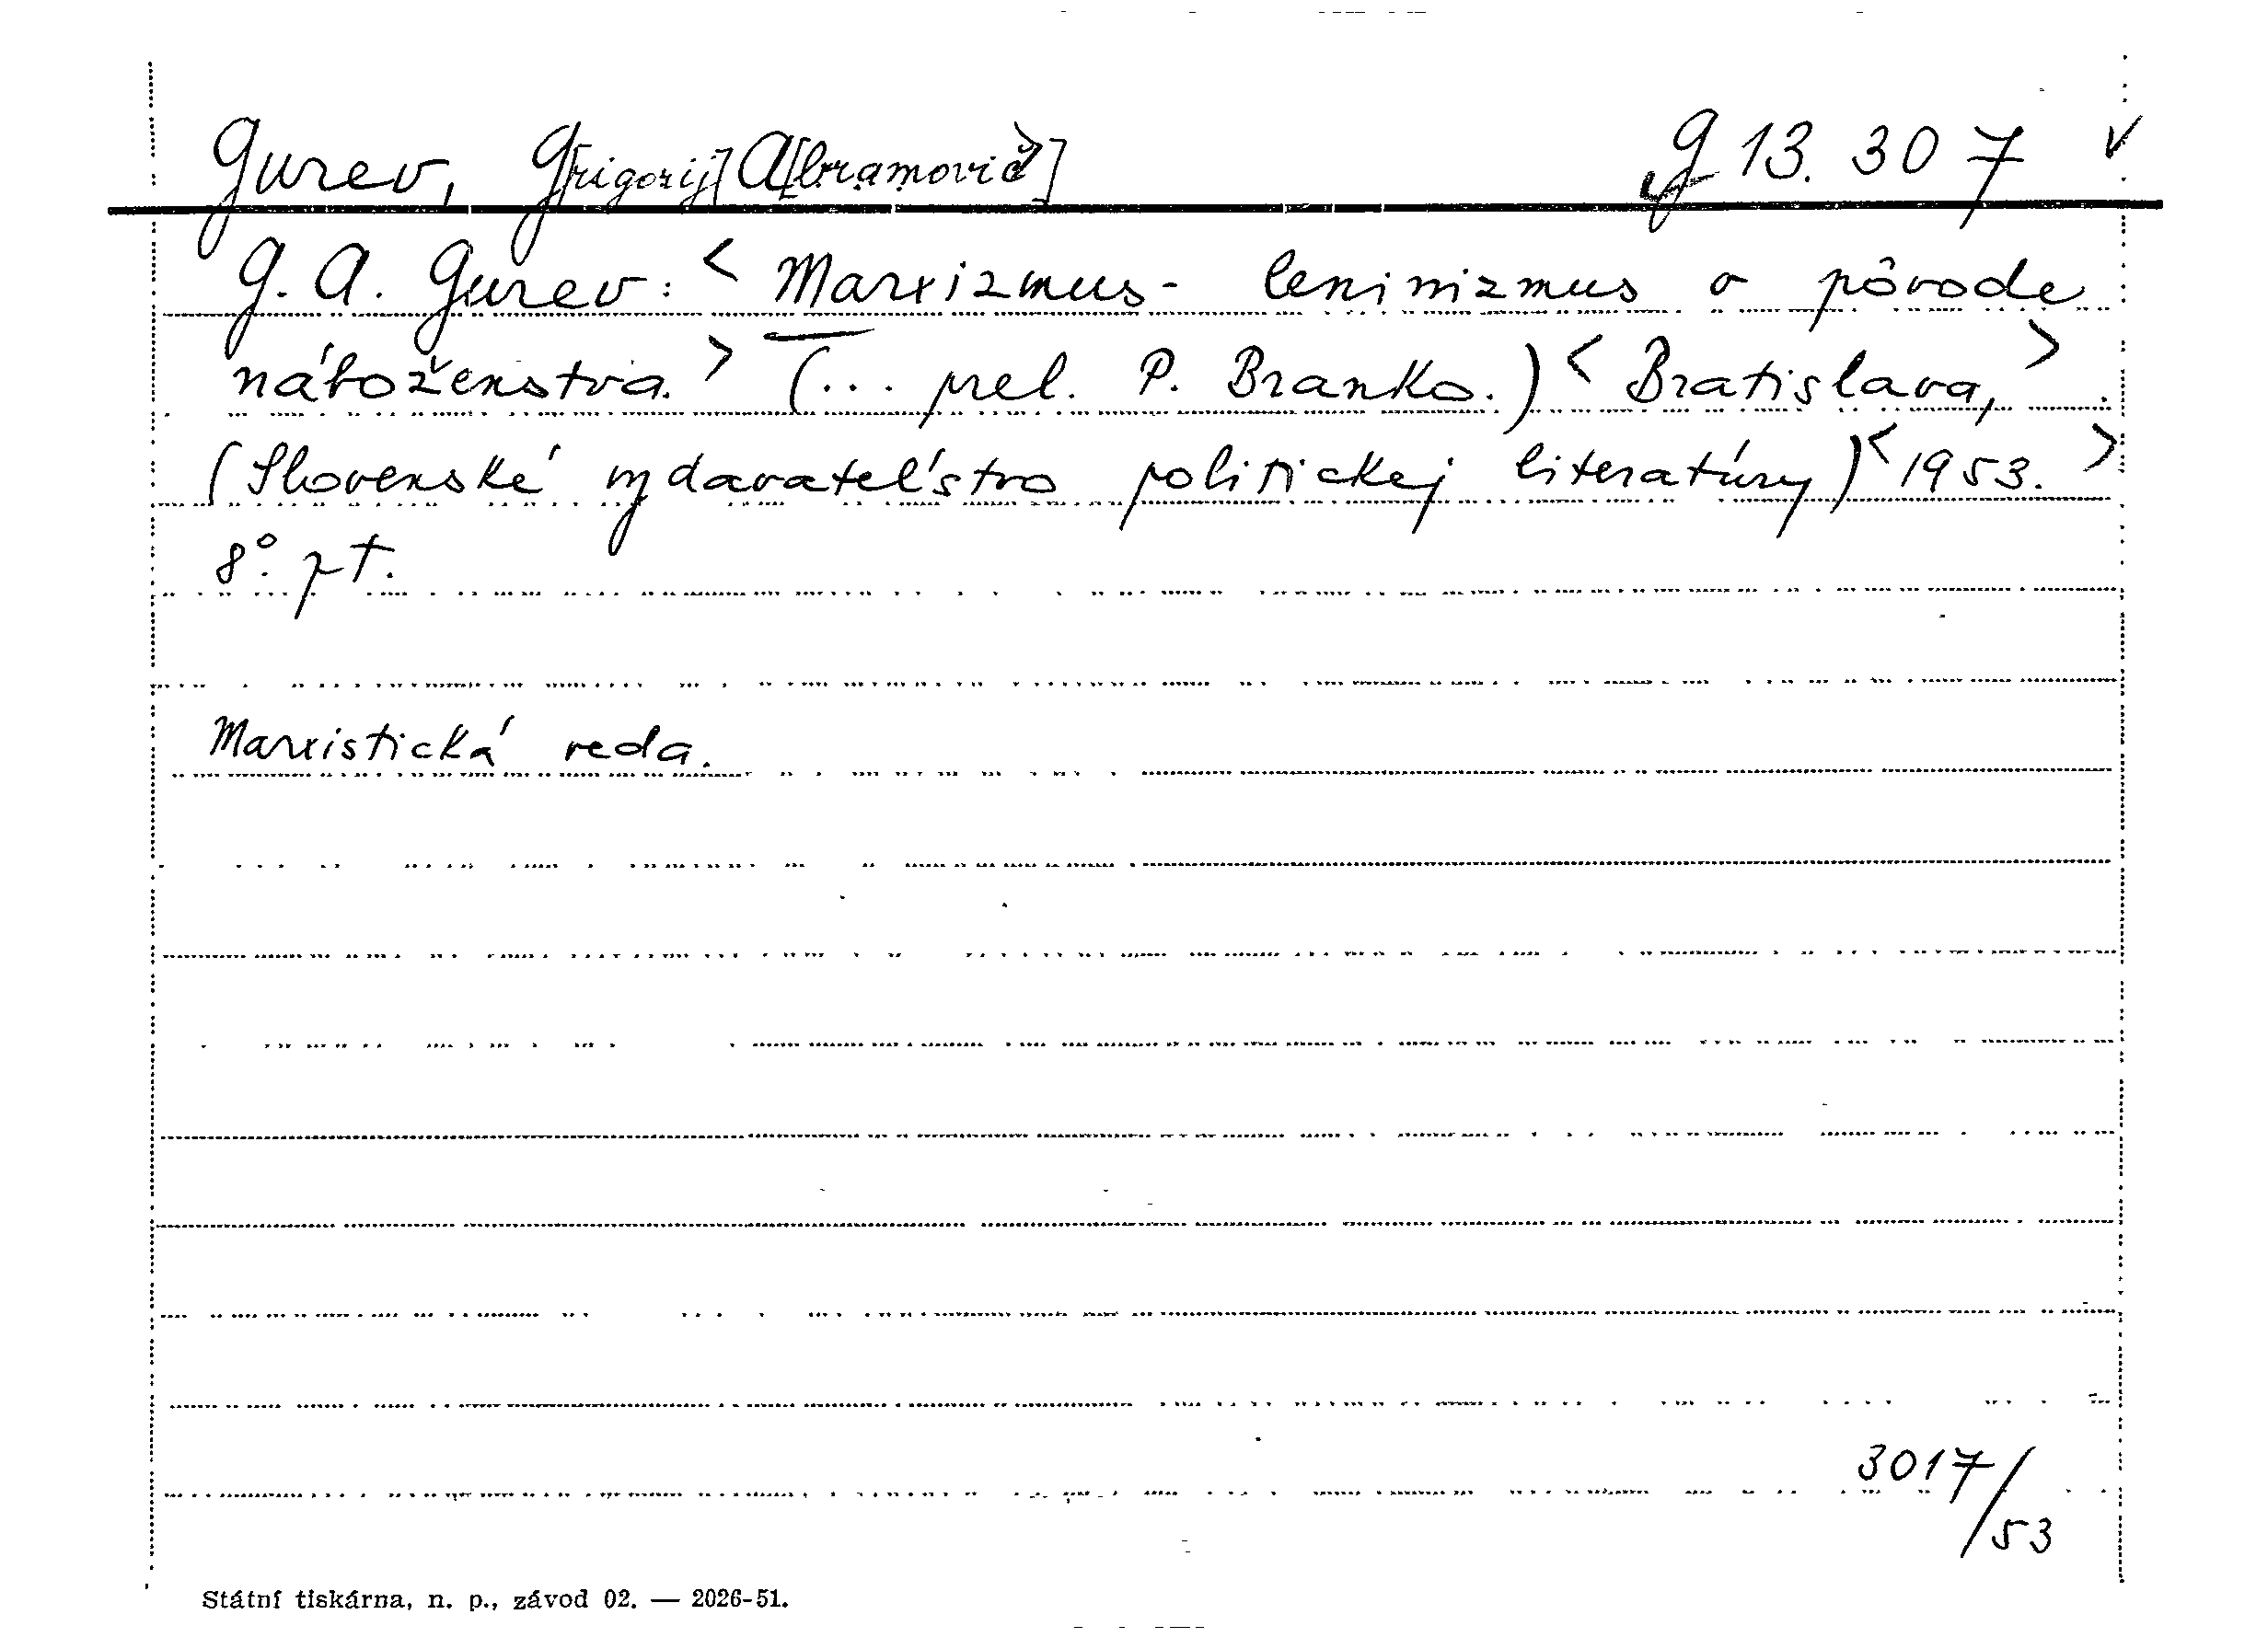 Gurev, G[rigorij] A[bramovič]
G 13.307 v
G. A. Gurev: < Marxizmus-leninizmus o pôvode
náboženstva. > (... prel. P. Branko.) < Bratislava, >
(Slovenské vydavateľstvo politickej literatúry) < 1953. >
8°. pt.
Marxistická veda.
3017/53
Státní tiskárna, n. p., závod 02. — 2026-51.